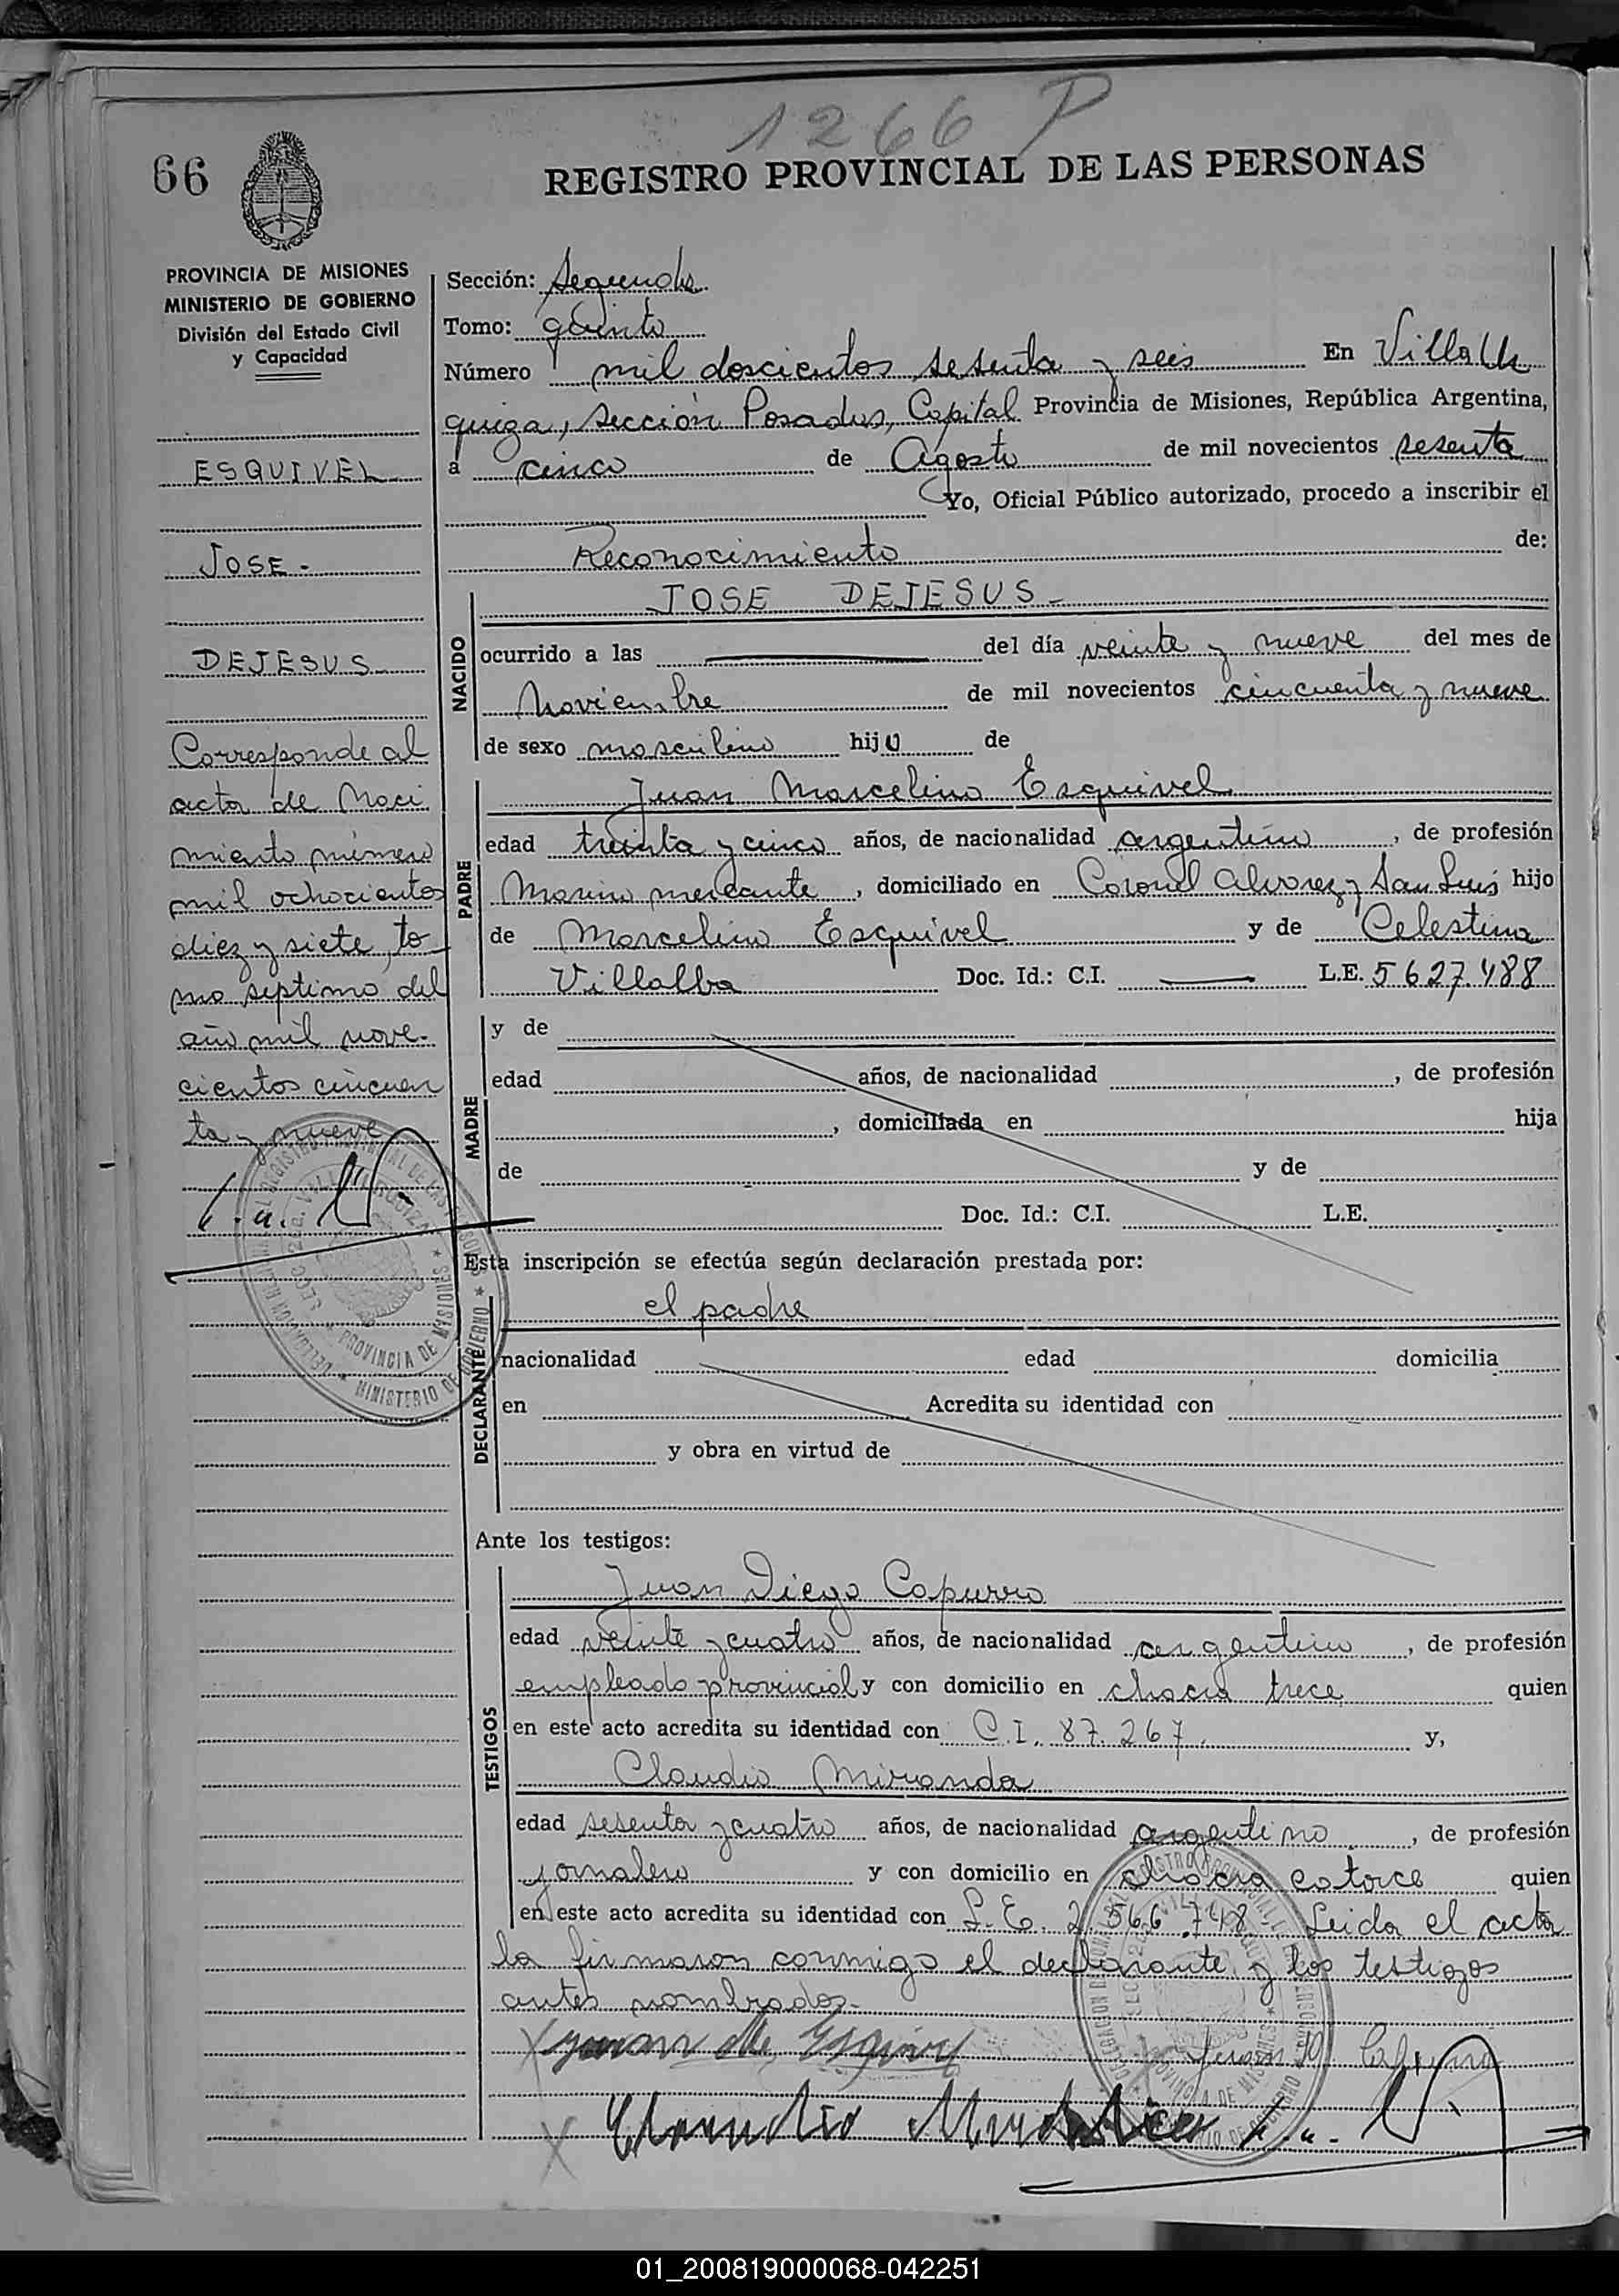 1266 P
66
REGISTRO PROVINCIAL DE LAS PERSONAS
PROVINCIA DE MISIONES
MINISTERIO DE GOBIERNO
División del Estado Civil
y Capacidad
ESQUIVEL
JOSE -
DEJESUS
Corresponde al
acta de Naci
miento número
mil ochocientos
diez y siete, to
mo septimo del
año mil nove-
cientos cincuen
ta y nueve
Sección: Segunda
Tomo: quinto
Número mil doscientos sesenta y seis En Villa U
quiza, sección Posadas, Capital Provincia de Misiones, República Argentina,
a cinco de Agosto de mil novecientos sesenta
Yo, Oficial Público autorizado, procedo a inscribir el
Reconocimiento de:
NACIDO
JOSE DEJESUS -
ocurrido a las del día veinte y nueve del mes de
Noviembre de mil novecientos cincuenta y nueve
de sexo masculino hijo de
PADRE
Juan Marcelino Esquivel
edad treinta y cinco años, de nacionalidad argentino, de profesión
Marino mercante, domiciliado en Coronel Alvarez y San Luis hijo
de Marcelino Esquivel y de Celestina
Villalba Doc. Id.: C.I. L.E. 5627.488
MADRE
y de
edad años, de nacionalidad , de profesión
, domiciliada en hija
de y de
Doc. Id.: C.I. L.E.
Esta inscripción se efectúa según declaración prestada por:
DECLARANTE
el padre
nacionalidad edad domicilia
en Acredita su identidad con
y obra en virtud de
Ante los testigos:
TESTIGOS
Juan Diego Capurro
edad veinte y cuatro años, de nacionalidad argentino, de profesión
empleado provincial y con domicilio en chacra trece quien
en este acto acredita su identidad con C.I. 87.267. y,
Claudio Miranda
edad sesenta y cuatro años, de nacionalidad argentino, de profesión
jornalero y con domicilio en chacra catorce quien
en este acto acredita su identidad con L.E. 2.566.748. Leida el acta
la firmaron conmigo el declarante y los testigos
antes nombrados.-
PROVINCIA DE MISIONES
MINISTERIO DE GOBIERNO
01_200819000068-042251